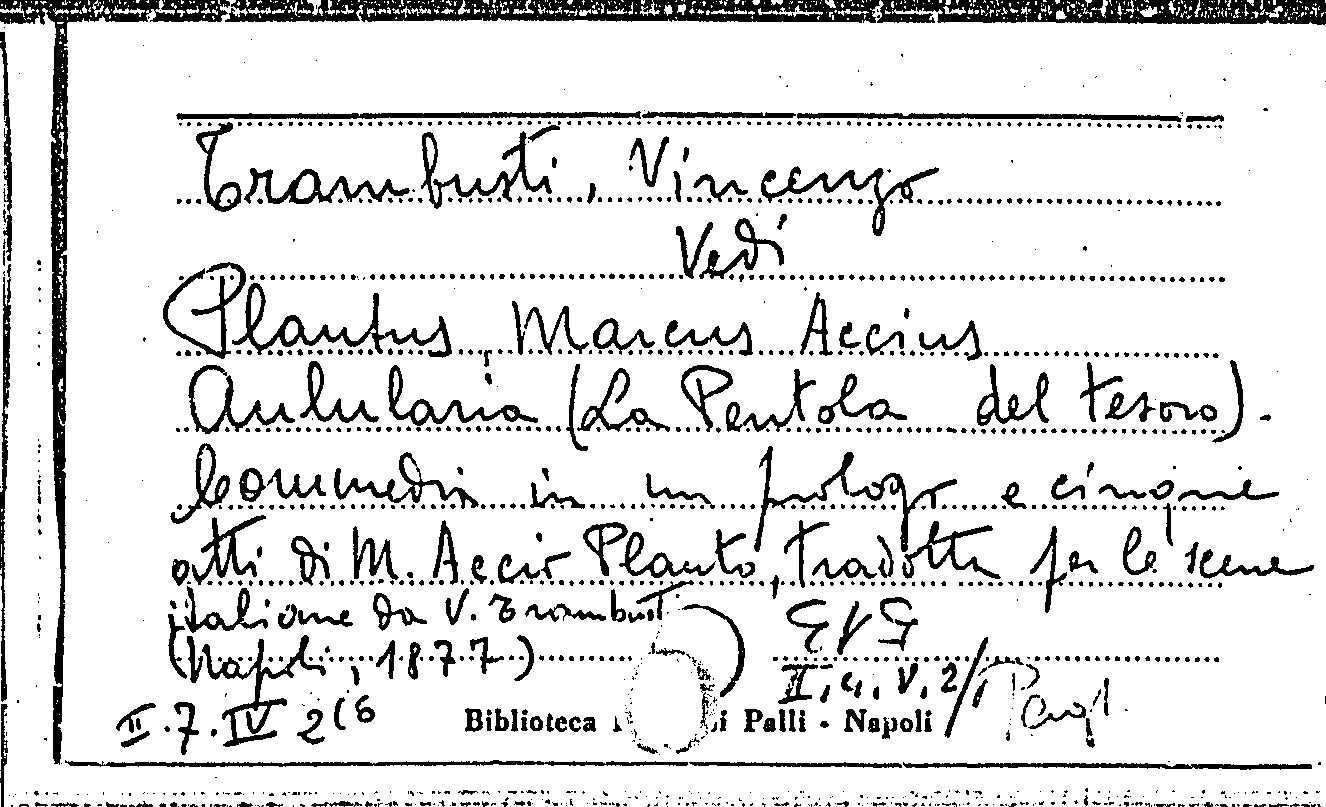 Trambusti, Vincenzo
Vedi
Plautus, Marcus Accius
Aulularia (La Pentola del tesoro).
Commedia in un prologo e cinque
atti di M. Accio Plauto, tradotta per le scene
italiane da V. Trambusti
(Napoli, 1877)
II.4.V.2/1
II.7.IV 2(6
Biblioteca Palli - Napoli